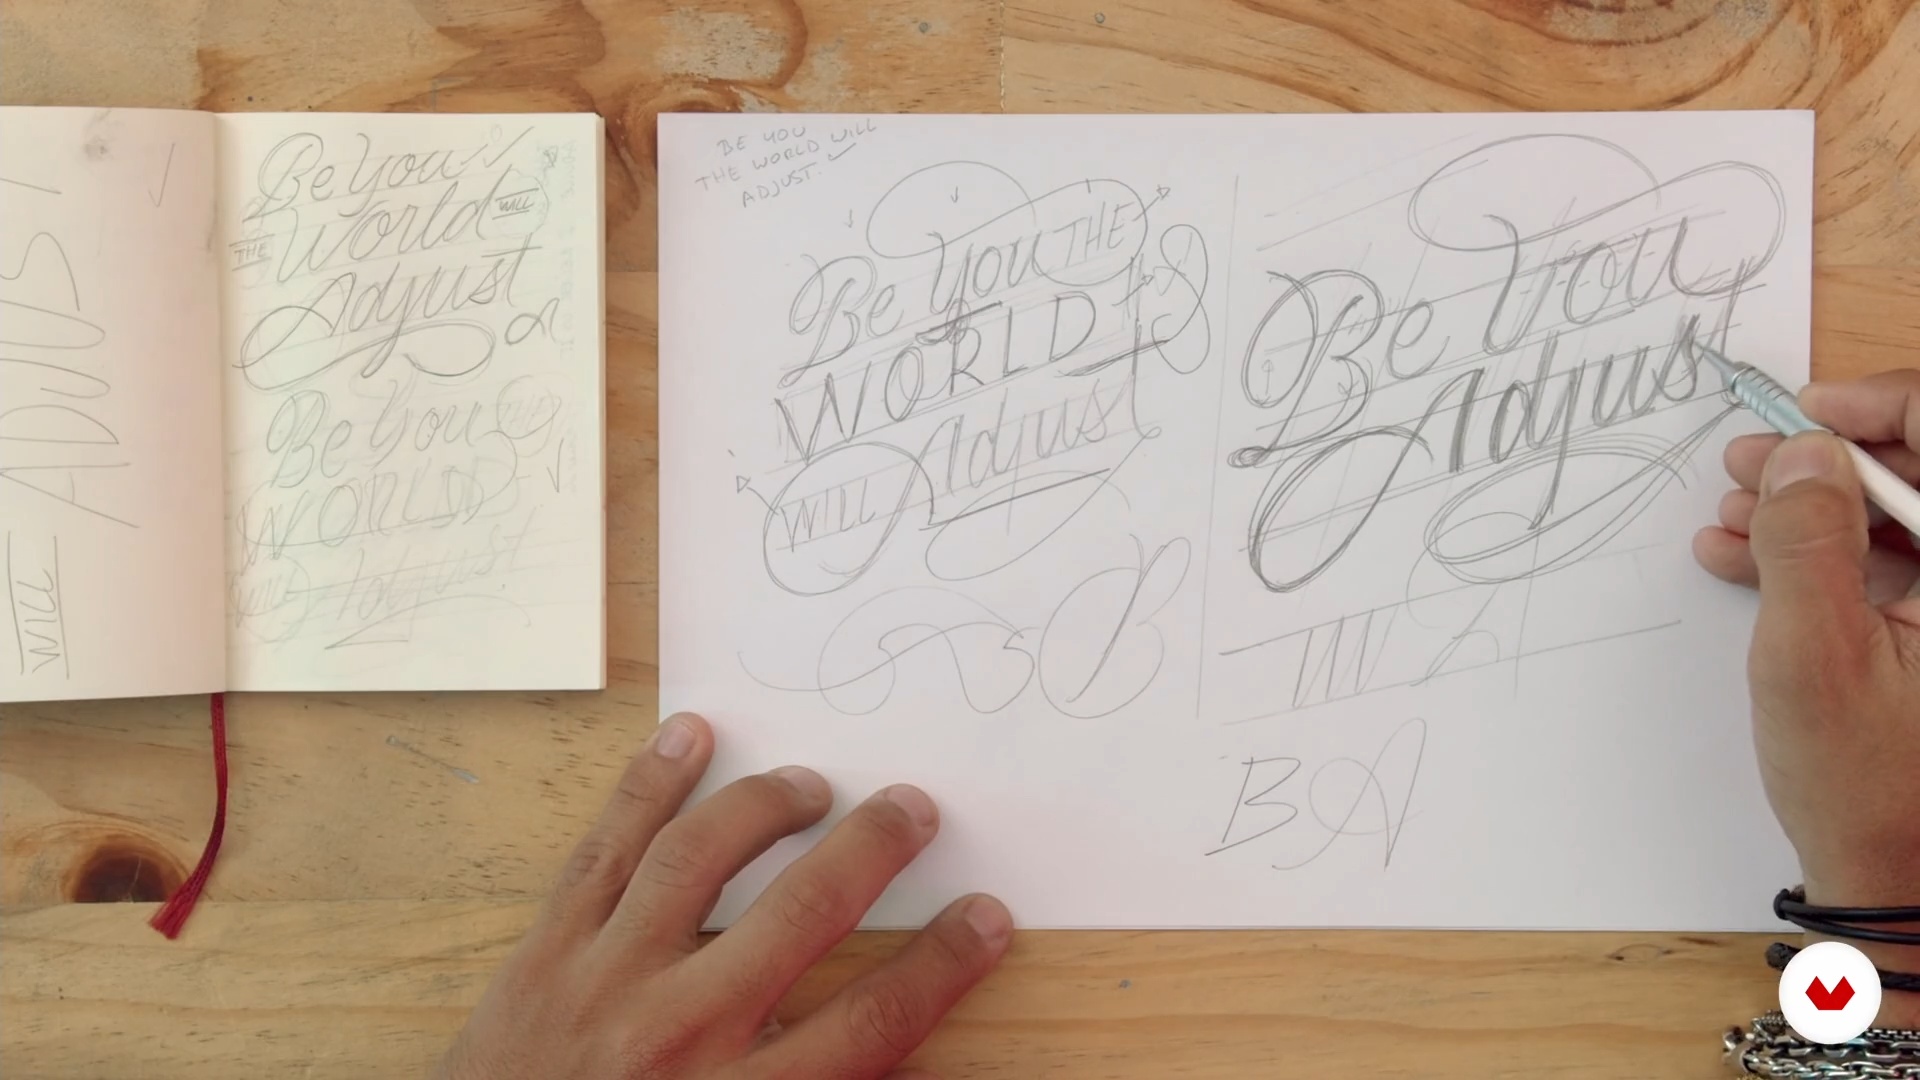 ADJUST
WILL
Be You
World WILL
THE
Adjust
a
Be You THE
WORLD
WILL Adjust
BE YOU
THE WORLD WILL
ADJUST.
Be You THE
WORLD
Adjust
WILL
B
Be You
Adjust
B A